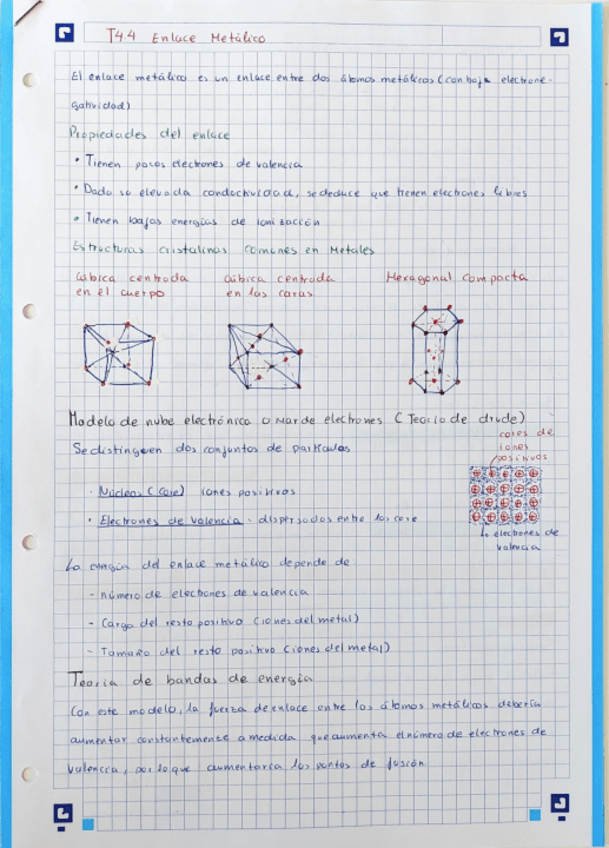 T4.4 Enlace Metálico
El enlace metálico es un enlace entre dos átomos metálicos (con baja electrone-
gatividad)
Propiedades del enlace
• Tienen pocos electrones de valencia
• Dado su elevada conductividad, se deduce que tienen electrones libres
• Tienen bajas energías de ionización
Estructuras cristalinas comunes en Metales
Cúbica centrada
en el cuerpo
Cúbica centrada
en las caras
Hexagonal compacta
Modelo de nube electrónica o Mar de electrones (Teoría de drude)
cores de
iones
positivos
Se distinguen dos conjuntos de partículas
· Núcleos (Core) iones positivos
• Electrones de valencia · dispersados entre los core
↳ electrones de
valencia
La energía del enlace metálico depende de
- número de electrones de valencia
- Carga del resto positivo (iones del metal)
- Tamaño del resto positivo (iones del metal)
Teoria de bandas de energía
Con este modelo, la fuerza de enlace entre los átomos metálicos debería
aumentar constantemente a medida que aumenta el número de electrones de
valencia, por lo que aumentaría los puntos de fusión